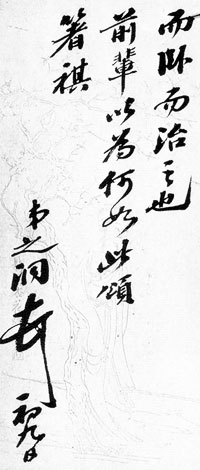 而卧而治之也
前輩以為何如此頌
箸祺
弟之洞
初九日